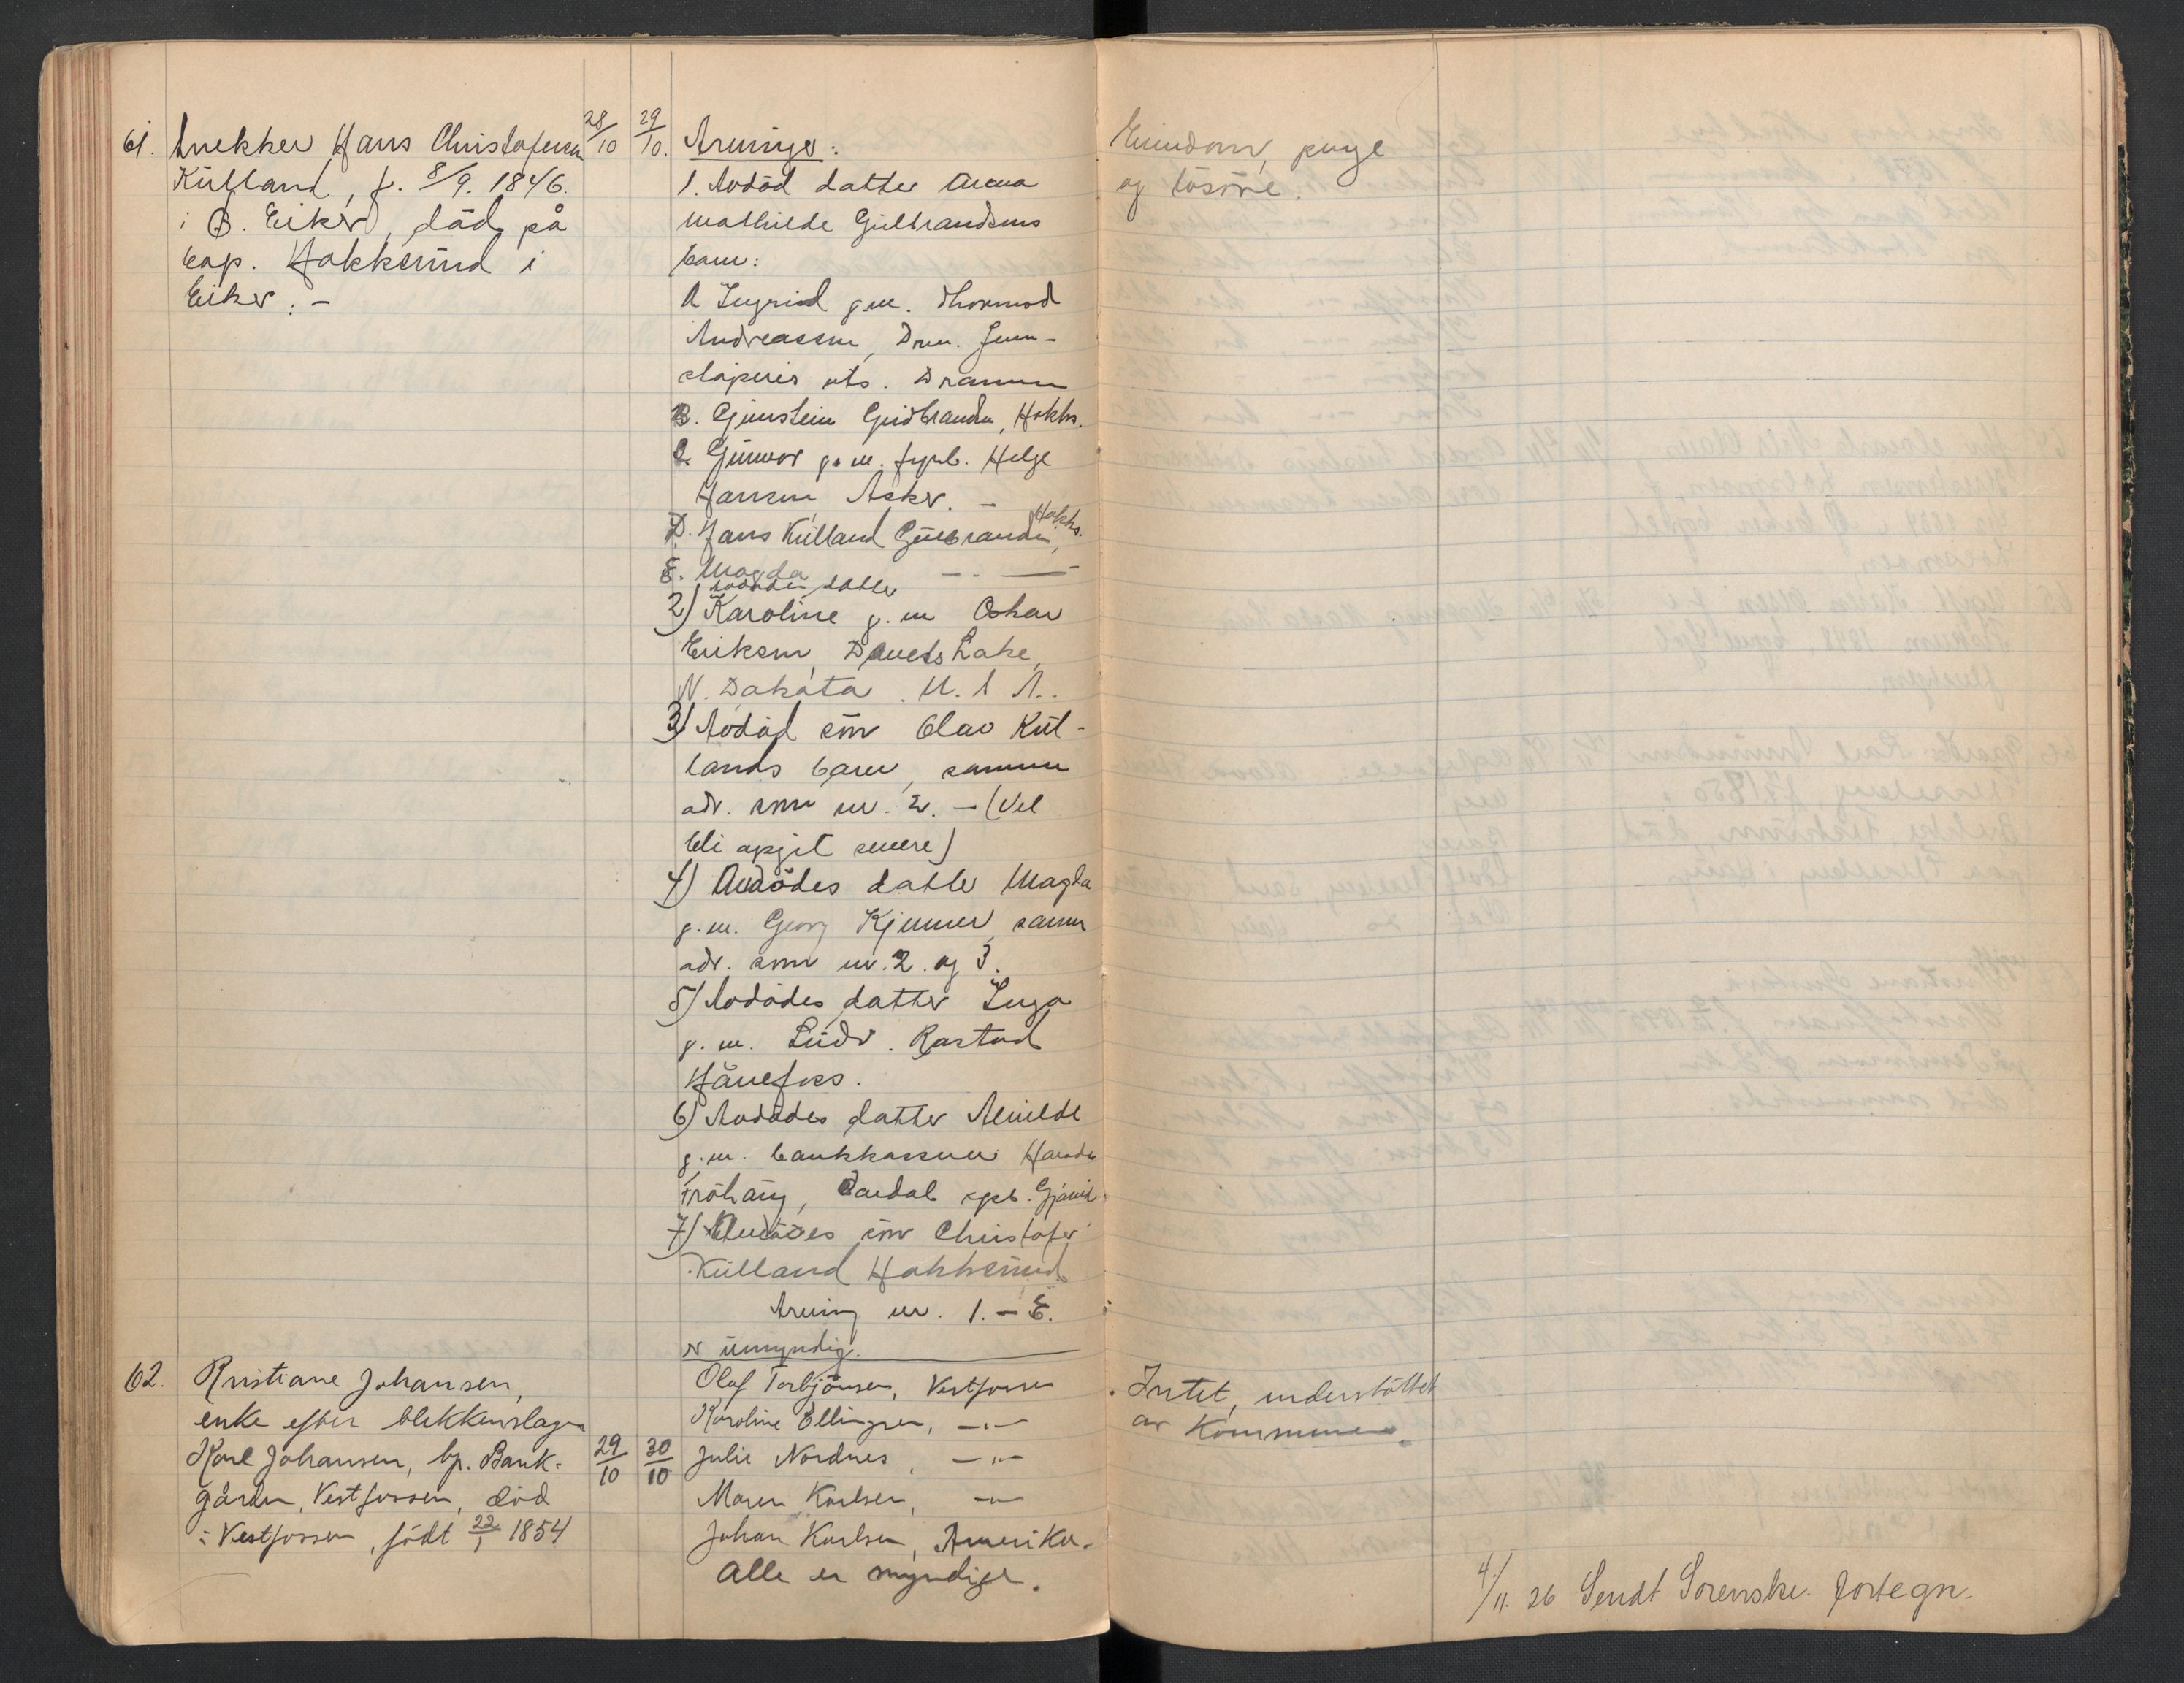 61. Snekker Hans Christofersen 28/10 29/10.
Külland, f. 8/9. 1846.
i Ø. Eiker, död på
eap. Hokksünd i
Eiker. -
Arvinger:
1. Avdöd datter Anna
Mathilde Gülbrandsens
barn:
A Ingrid g.m. Thormod
Andreassen, Drm. Jern-
støperis uts. Drammen
B. Gjünstein Güdbrandsn, Hokks.
C. Günvor g.m. fyrb. Helge
Hansen, Asker. -
D. Hans Külland Gülbrandsn, Hokks.
E. Magda - " -
2) avdødes datter
Karoline g.m Oskar
Eriksen, Devels Lake,
N. Dakota. U. S A.
3) Avdöd sön Olav Kül-
lands barn, samme
adr. som nr. 2. - (Vil
bli opgit senere)
4) Avdödes datter Magda
g.m. Georg Kjemner, samme
adr. som nr. 2. og 3.
5) Avdödes datter Inga
g.m. Lüdv. Rastad
Hånefoss.
6) Avdödes datter Alvilde
g.m. bankkasserer
Fröhaüg, Vardal spb. Gjøvik.
7) Avdödes sön Christofer
Külland Hokksünd
Arving nr. 1. - E.
er ümyndig.
Eiendom, penge
og lösöre.
62. Kristiane Johansen,
enke efter blikkenslager
Karl Johansen, bp. Bank- 29/10 30/10
gården, Vestfossen, död
i Vestfossen, født 22/1 1854
Olaf Torbjönsen, Vestfossen
Karoline Ellingsen, -"-
Julie Nordnes, -"-
Maren Karlsen, -"-
Johan Karlsen, Amerika.
Alle er myndige.
Intet, understöttet
av Kommunen.
4/11. 26 Sendt Sorenskr. fortegn.